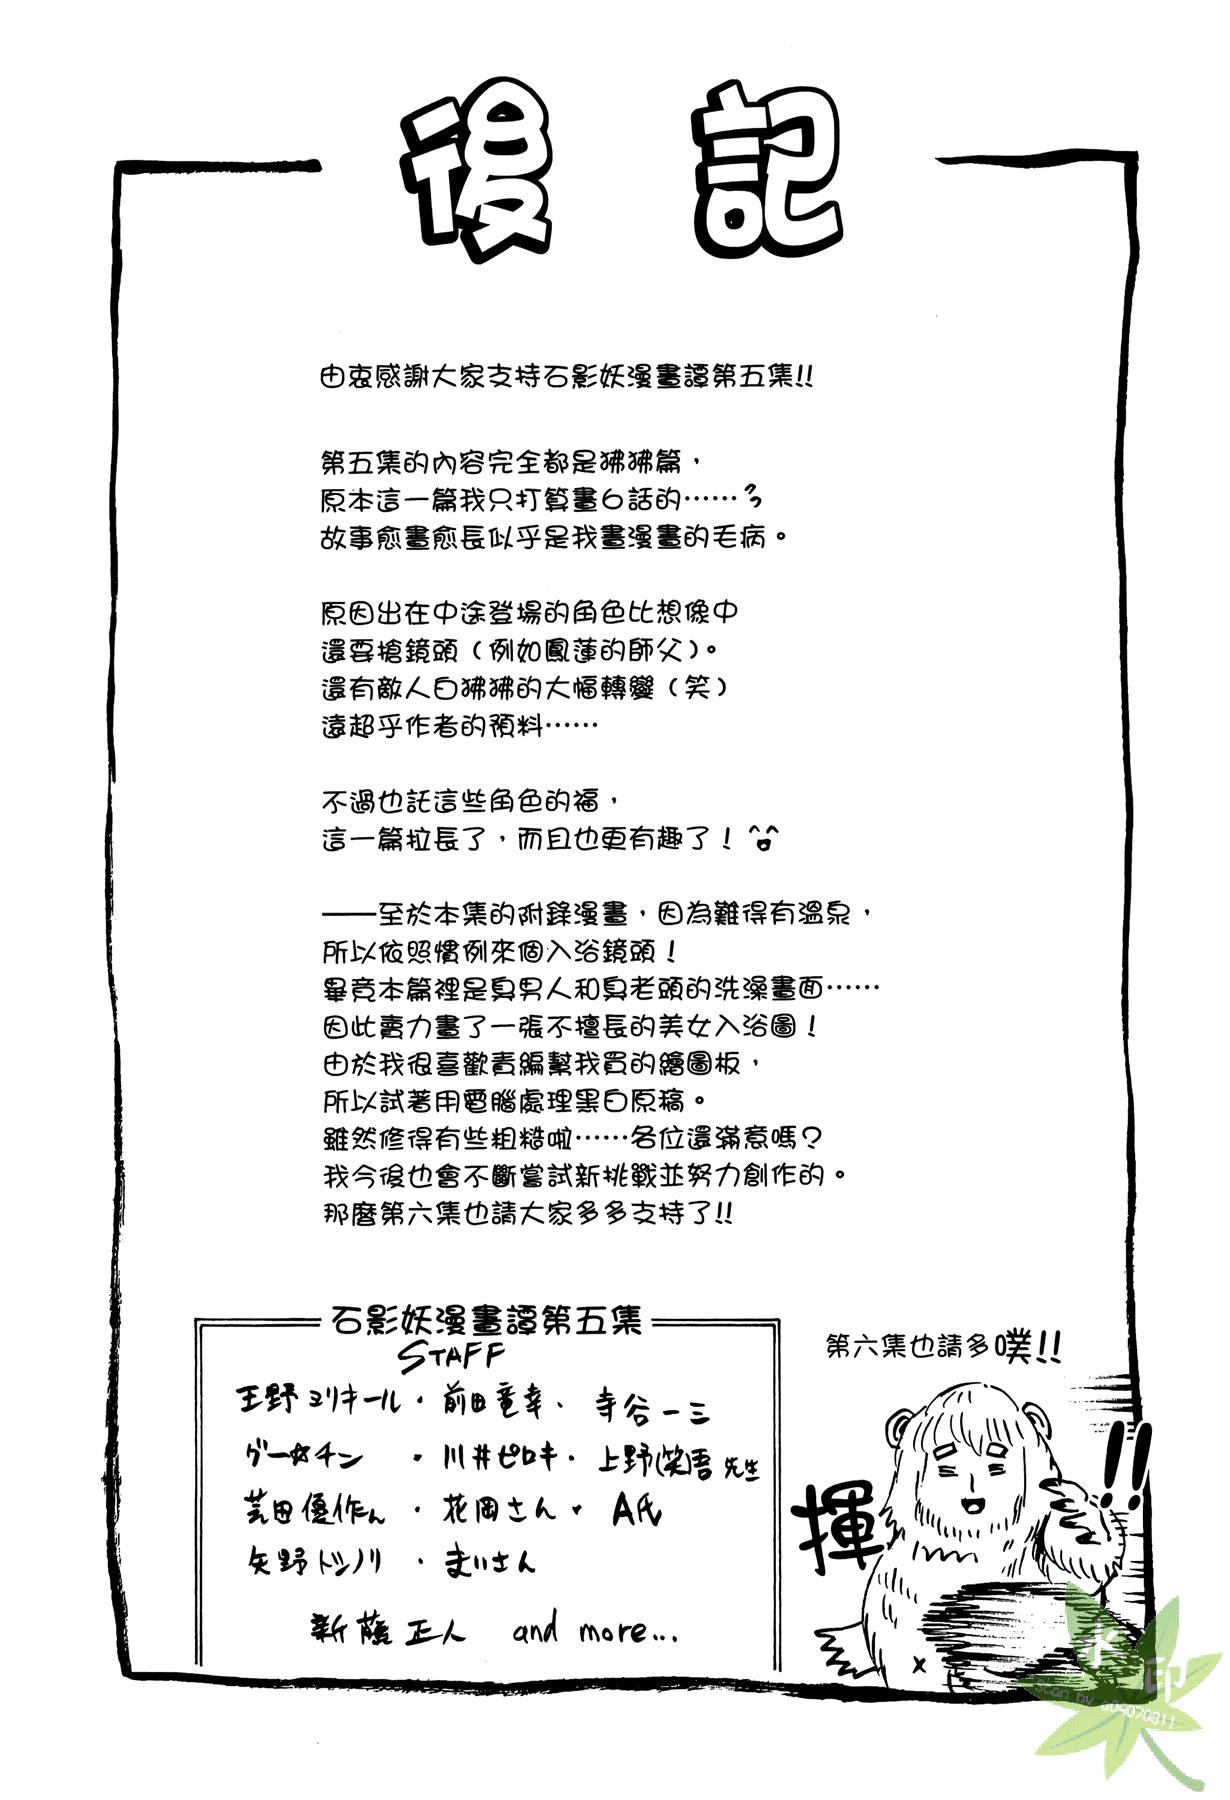 後記
由衷感謝大家支持石影妖漫畫譚第五集!!
第五集的內容完全都是狒狒篇，
原本這一篇我只打算畫6話的……
故事愈畫愈長似乎是我畫漫畫的毛病。
原因出在中途登場的角色比想像中
還要搶鏡頭（例如鳳蓮的師父）。
還有敵人白狒狒的大幅轉變（笑）
遠超乎作者的預料……
不過也託這些角色的福，
這一篇拉長了，而且也更有趣了！
——至於本集的附錄漫畫，因為難得有溫泉，
所以依照慣例來個入浴鏡頭！
畢竟本篇裡是臭男人和臭老頭的洗澡畫面……
因此賣力畫了一張不擅長的美女入浴圖！
由於我很喜歡責編幫我買的繪圖板，
所以試著用電腦處理黑白原稿。
雖然修得有些粗糙啦……各位還滿意嗎？
我今後也會不斷嘗試新挑戰並努力創作的。
那麼第六集也請大家多多支持了!!
石影妖漫畫譚第五集
STAFF
王野ユリキール・前田竜幸・寺谷一三
グーセチン・川井ピロキ・上野笑吾先生
荒田優作ん・花岡さん・A氏
矢野トシノリ・まいさん
新藤正人 and more...
第六集也請多噗!!
揮
!!
水印
scan by 609070811